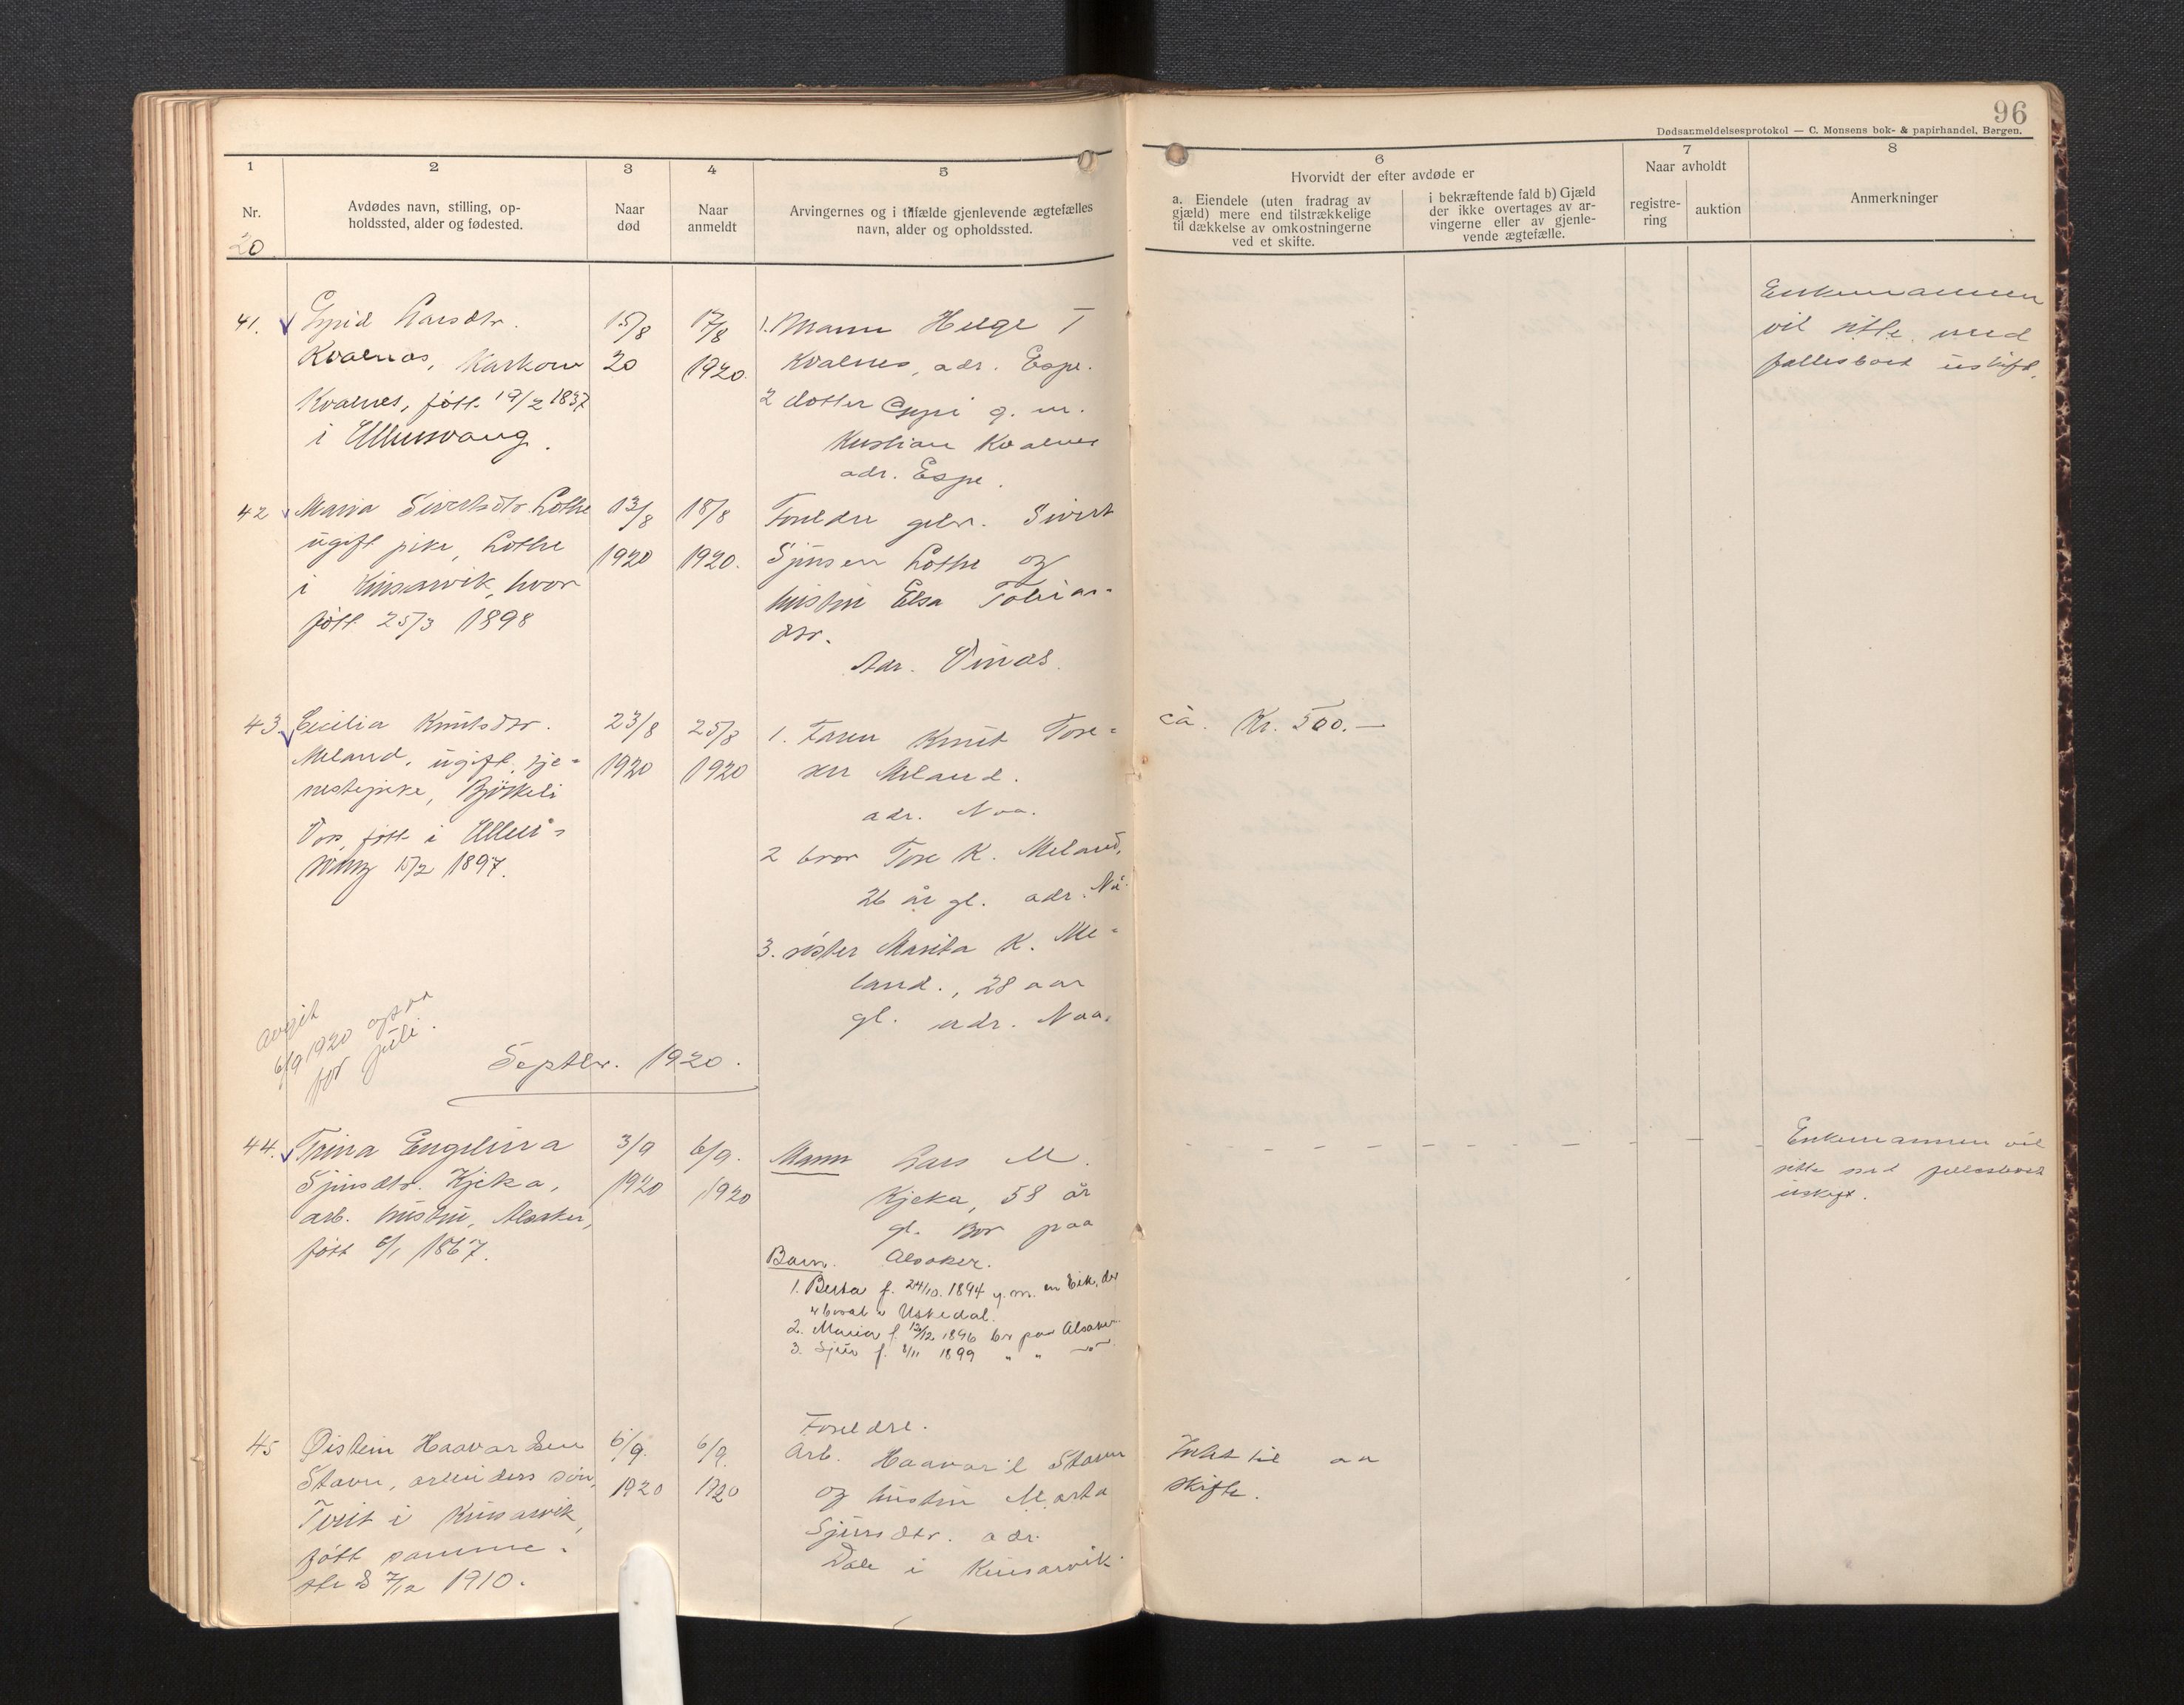 96
Dødsanmeldelsesprotokol — C. Monsens bok- & papirhandel, Bergen.
1
Nr.
20
2
Avdødes navn, stilling, op-
holdssted, alder og fødested.
3
Naar
død
4
Naar
anmeldt
5
Arvingernes og i tilfælde gjenlevende ægtefælles
navn, alder og opholdssted.
6
Hvorvidt der efter avdøde er
a. Eiendele (uten fradrag av
gjæld) mere end tilstrækkelige
til dækkelse av omkostningerne
ved et skifte.
i bekræftende fald b) Gjæld
der ikke overtages av ar-
vingerne eller av gjenle-
vende ægtefælle.
7
Naar avholdt
registre-
ring
auktion
8
Anmerkninger
41.
Larsdtr.
Kvalnes, Karkone
Kvalnes, født 19/2 1837
i Ullensvang.
15/8
20
17/8
1920.
1. Mann Helge T
Kvalnes, adr. Espe.
2 dotter g. m.
Kristian Kvalnes
adr. Espe.
Enkemannen
vil sitte med
fællesboet uskift.
42
Maria Sivertsdtr Lothe
ugift pike, Lothe
i Kinsarvik, hvor
født 25/3 1898
13/8
1920
18/8
1920.
Foreldre gbr. Sivert
Sjursen Lothe og
hustru Elsa Tobias-
dtr.
Adr. Vinæs.
43
Cecilia Knutsdtr.
Meland, ugift, tje-
nestepike, Bjørkeli
Vos, født i Ullens-
vang 15/2 1897.
23/8
1920
25/8
1920
1. Faren Knut Tore-
sen Meland.
adr. Naa.
2 bror Tore K. Meland,
26 år gl. adr. Nå.
3. sister Marita K. Me-
land., 28 aar
gl. adr. Naa.
ca. Kr. 500.—
Avgit
6/9 1920 opgave
for juli.
Septbr. 1920.
44.
Trina Engelina
Sjursdtr. Kjeka,
arb. hustru, Alsaker,
født 6/1 1867.
3/9
1920
6/9.
1920
Mann Lars M.
Kjeka, 58 år
gl. Bor paa
Alsaker.
Barn.
1. Berta f. 24/10. 1894 g. m. en Eik, der
Uskedal.
2. Maria f. 12/12 1896 bor paa Alsaker.
3. Sjur f. 8/11 1899 " " —"—
Enkemannen vil
sitte med fellesboet
uskift.
45
Øistein Haavardsen
Stavn, arbeiders søn,
Tveit i Kinsarvik,
født samme-
steds 7/12 1910.
6/9.
1920
6/9.
1920
Foreldre.
Arb. Haavard Stavn
og hustru Marta
Sjursdtr. adr.
Dale i Kinsarvik.
Intet til aa
skifte.